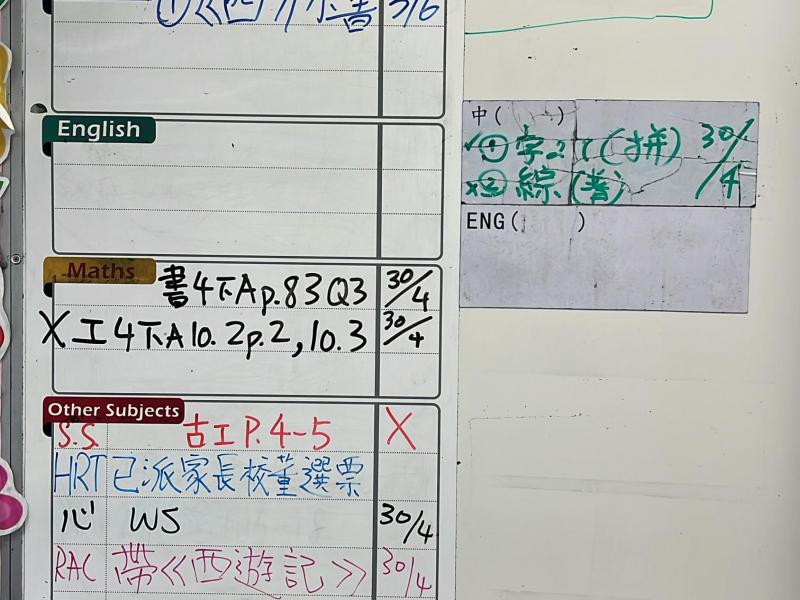 ①《西 小書 3/6
English
Maths
書4下A p.83 Q3 30/4
X 工4下A 10.2 p.2, 10.3 30/4
Other Subjects
S.S. 古工 P.4-5 X
HRT 已派家長校董選票
心 WS 30/4
RAC 帶《西遊記》 30/4
中( )
✓① 字 (拼) 30/4
x② 綜(普)
ENG( )